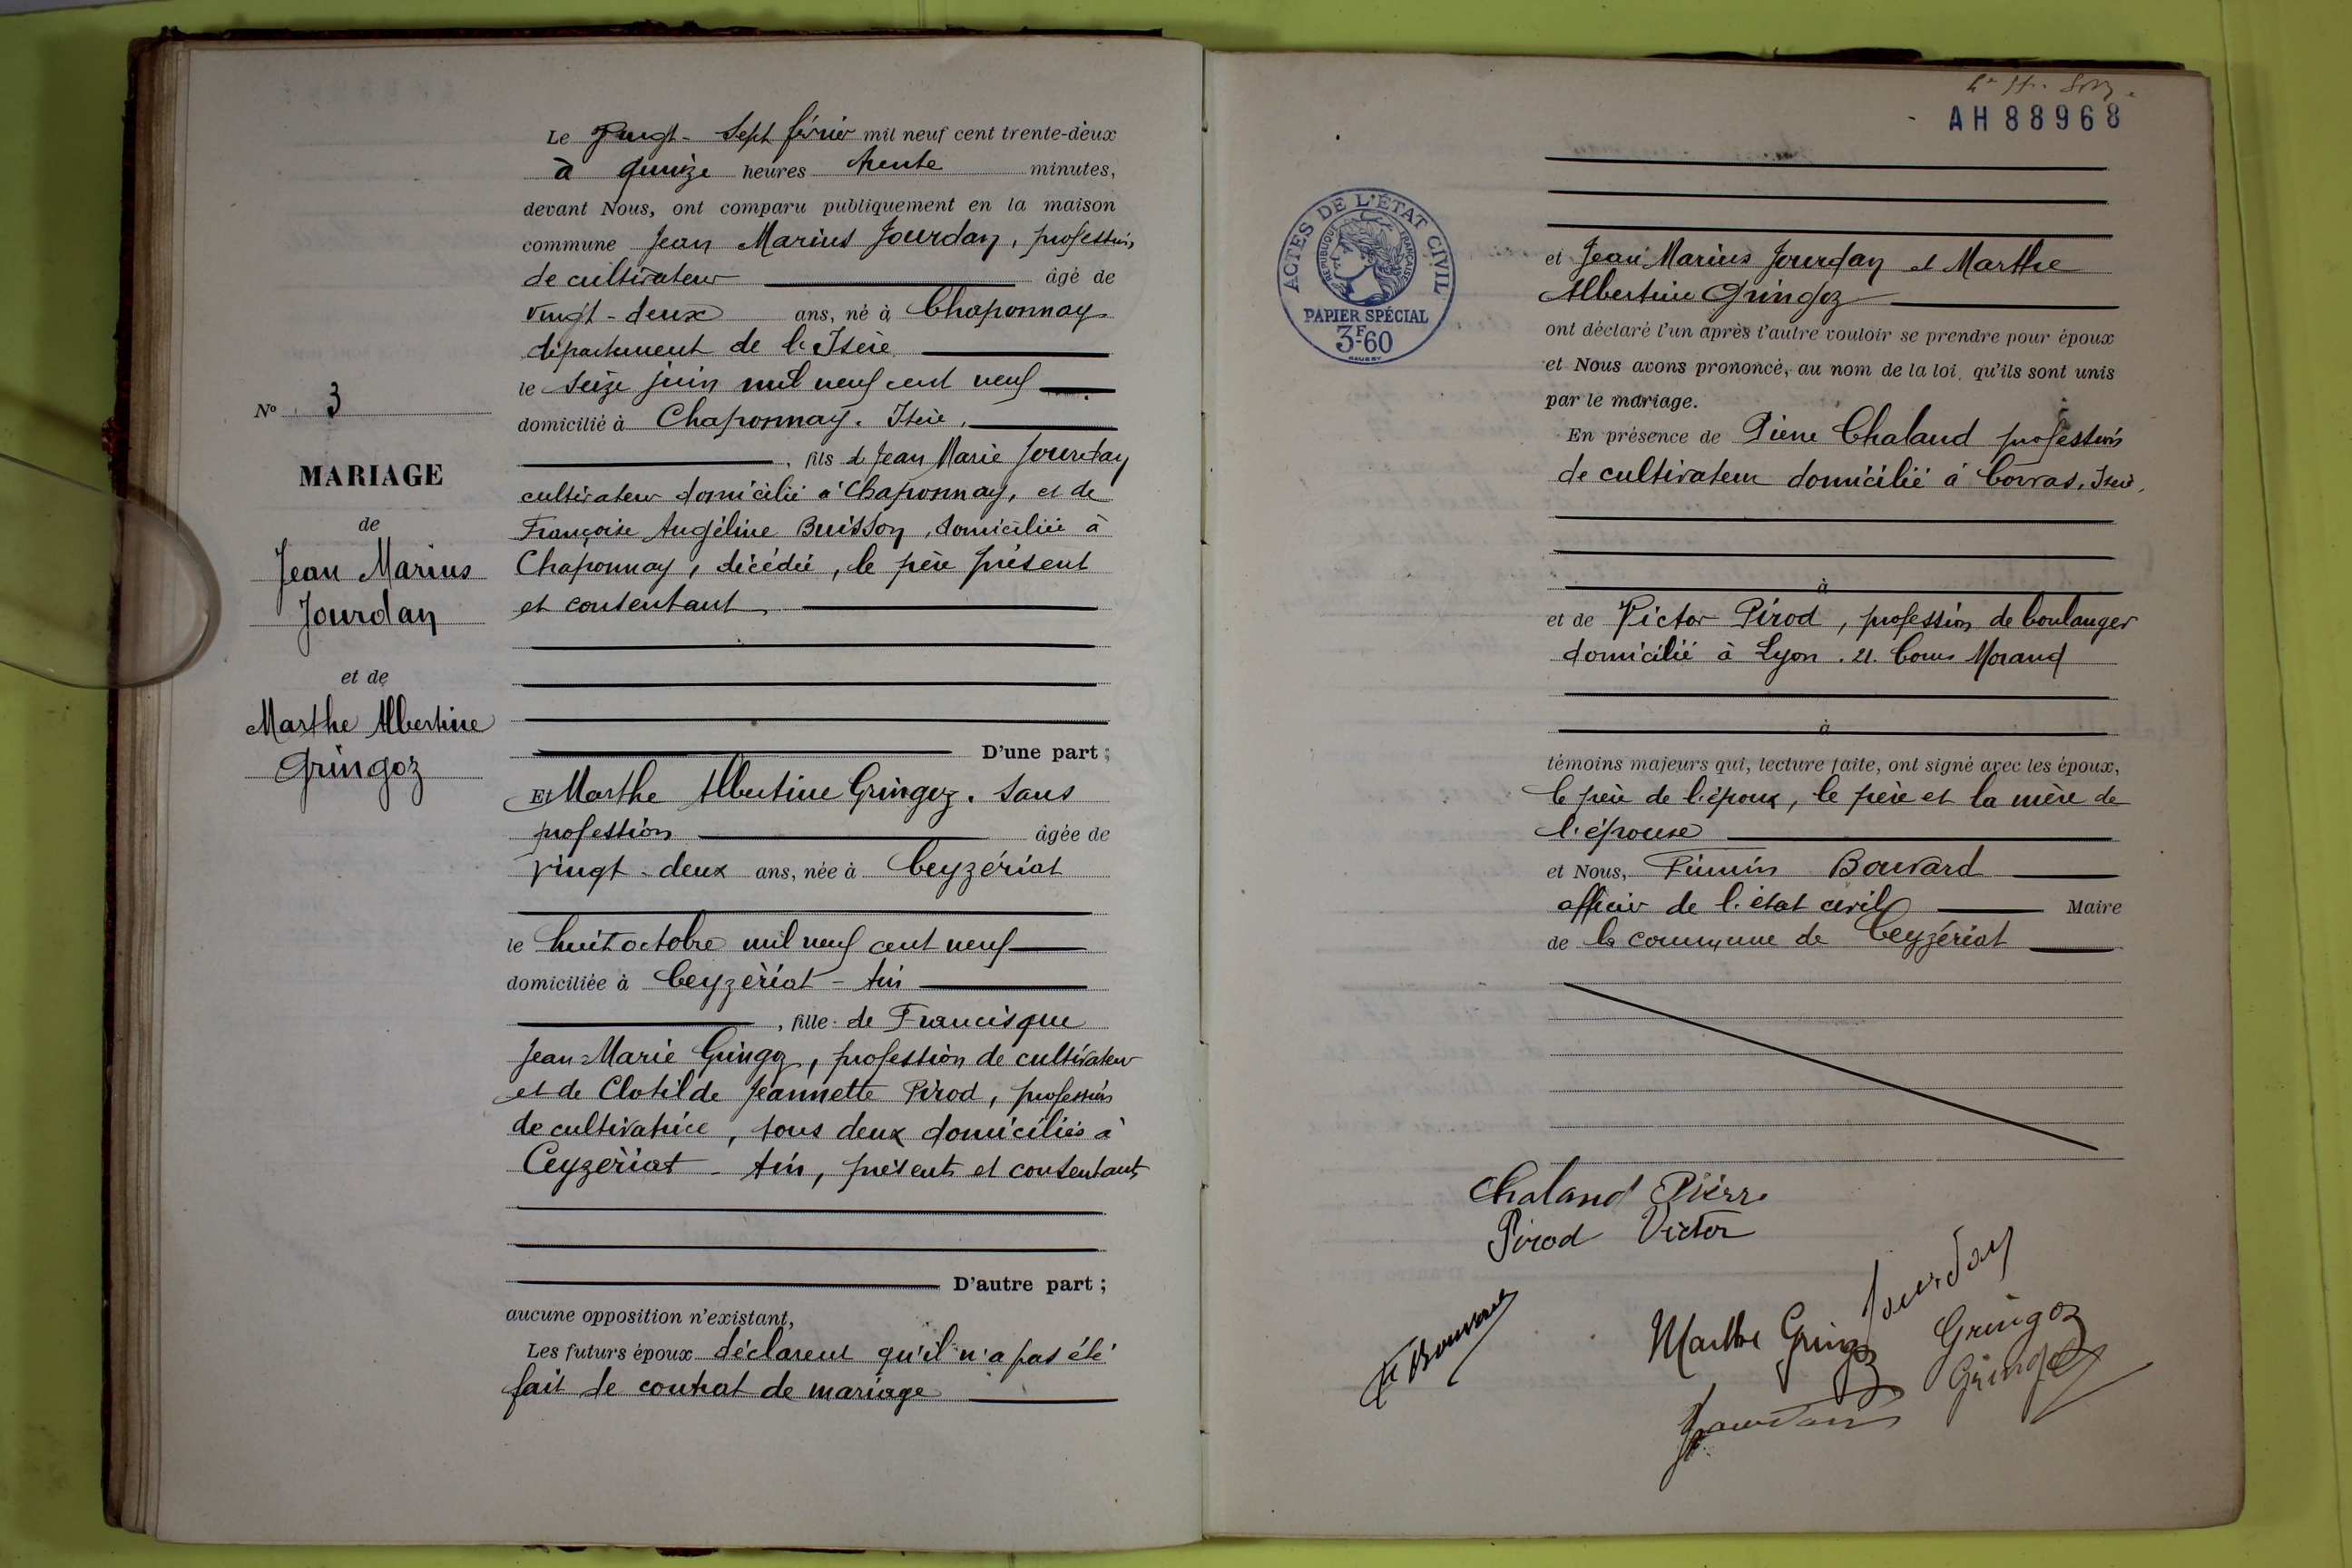 N° 3
MARIAGE
de
Jean Marius
Jourdan
et de
Marthe Albertine
Gringoz
Le vingt-sept février mil neuf cent trente-deux
à quinze heures trente minutes,
devant Nous, ont comparu publiquement en la maison
commune Jean Marius Jourdan, profession
de cultivateur âgé de
vingt-deux ans, né à Chaponnay
département de l'Isère
le seize juin mil neuf cent neuf
domicilié à Chaponnay. Isère,
, fils de Jean Marie Jourdan
cultivateur domicilié à Chaponnay, et de
Françoise Angéline Buisson, domiciliée à
Chaponnay, décédée, le père présent
et consentant
D'une part ;
Et Marthe Albertine Gringoz. sans
profession âgée de
vingt-deux ans, née à Ceyzériat
le huit octobre mil neuf cent neuf
domiciliée à Ceyzériat - Ain
, fille de Francisque
Jean-Marie Gringoz, profession de cultivateur
et de Clotilde Jeannette Pirod, profession
de cultivatrice, tous deux domiciliés à
Ceyzériat - Ain, présents et consentants
D'autre part ;
aucune opposition n'existant,
Les futurs époux déclarent qu'il n'a pas été
fait de contrat de mariage
AH 88968
ACTES DE L'ÉTAT CIVIL
RÉPUBLIQUE FRANÇAISE
PAPIER SPÉCIAL
3F60
et Jean Marius Jourdan et Marthe
Albertine Gringoz
ont déclaré l'un après l'autre vouloir se prendre pour époux
et Nous avons prononcé, au nom de la loi, qu'ils sont unis
par le mariage.
En présence de Pierre Chaland profession
de cultivateur domicilié à Corras, Isère,
à
et de Victor Pirod, profession de boulanger
domicilié à Lyon. 21. Cours Morand
à
témoins majeurs qui, lecture faite, ont signé avec les époux,
le père de l'époux, le père et la mère de
l'épouse
et Nous, Firmin Bouvard
officier de l'état civil Maire
de la commune de Ceyzériat
Chaland Pierre
Pirod Victor
F Bouvard
Marthe Gringoz
Jourdan
Gringoz
Gringoz
Jourdan